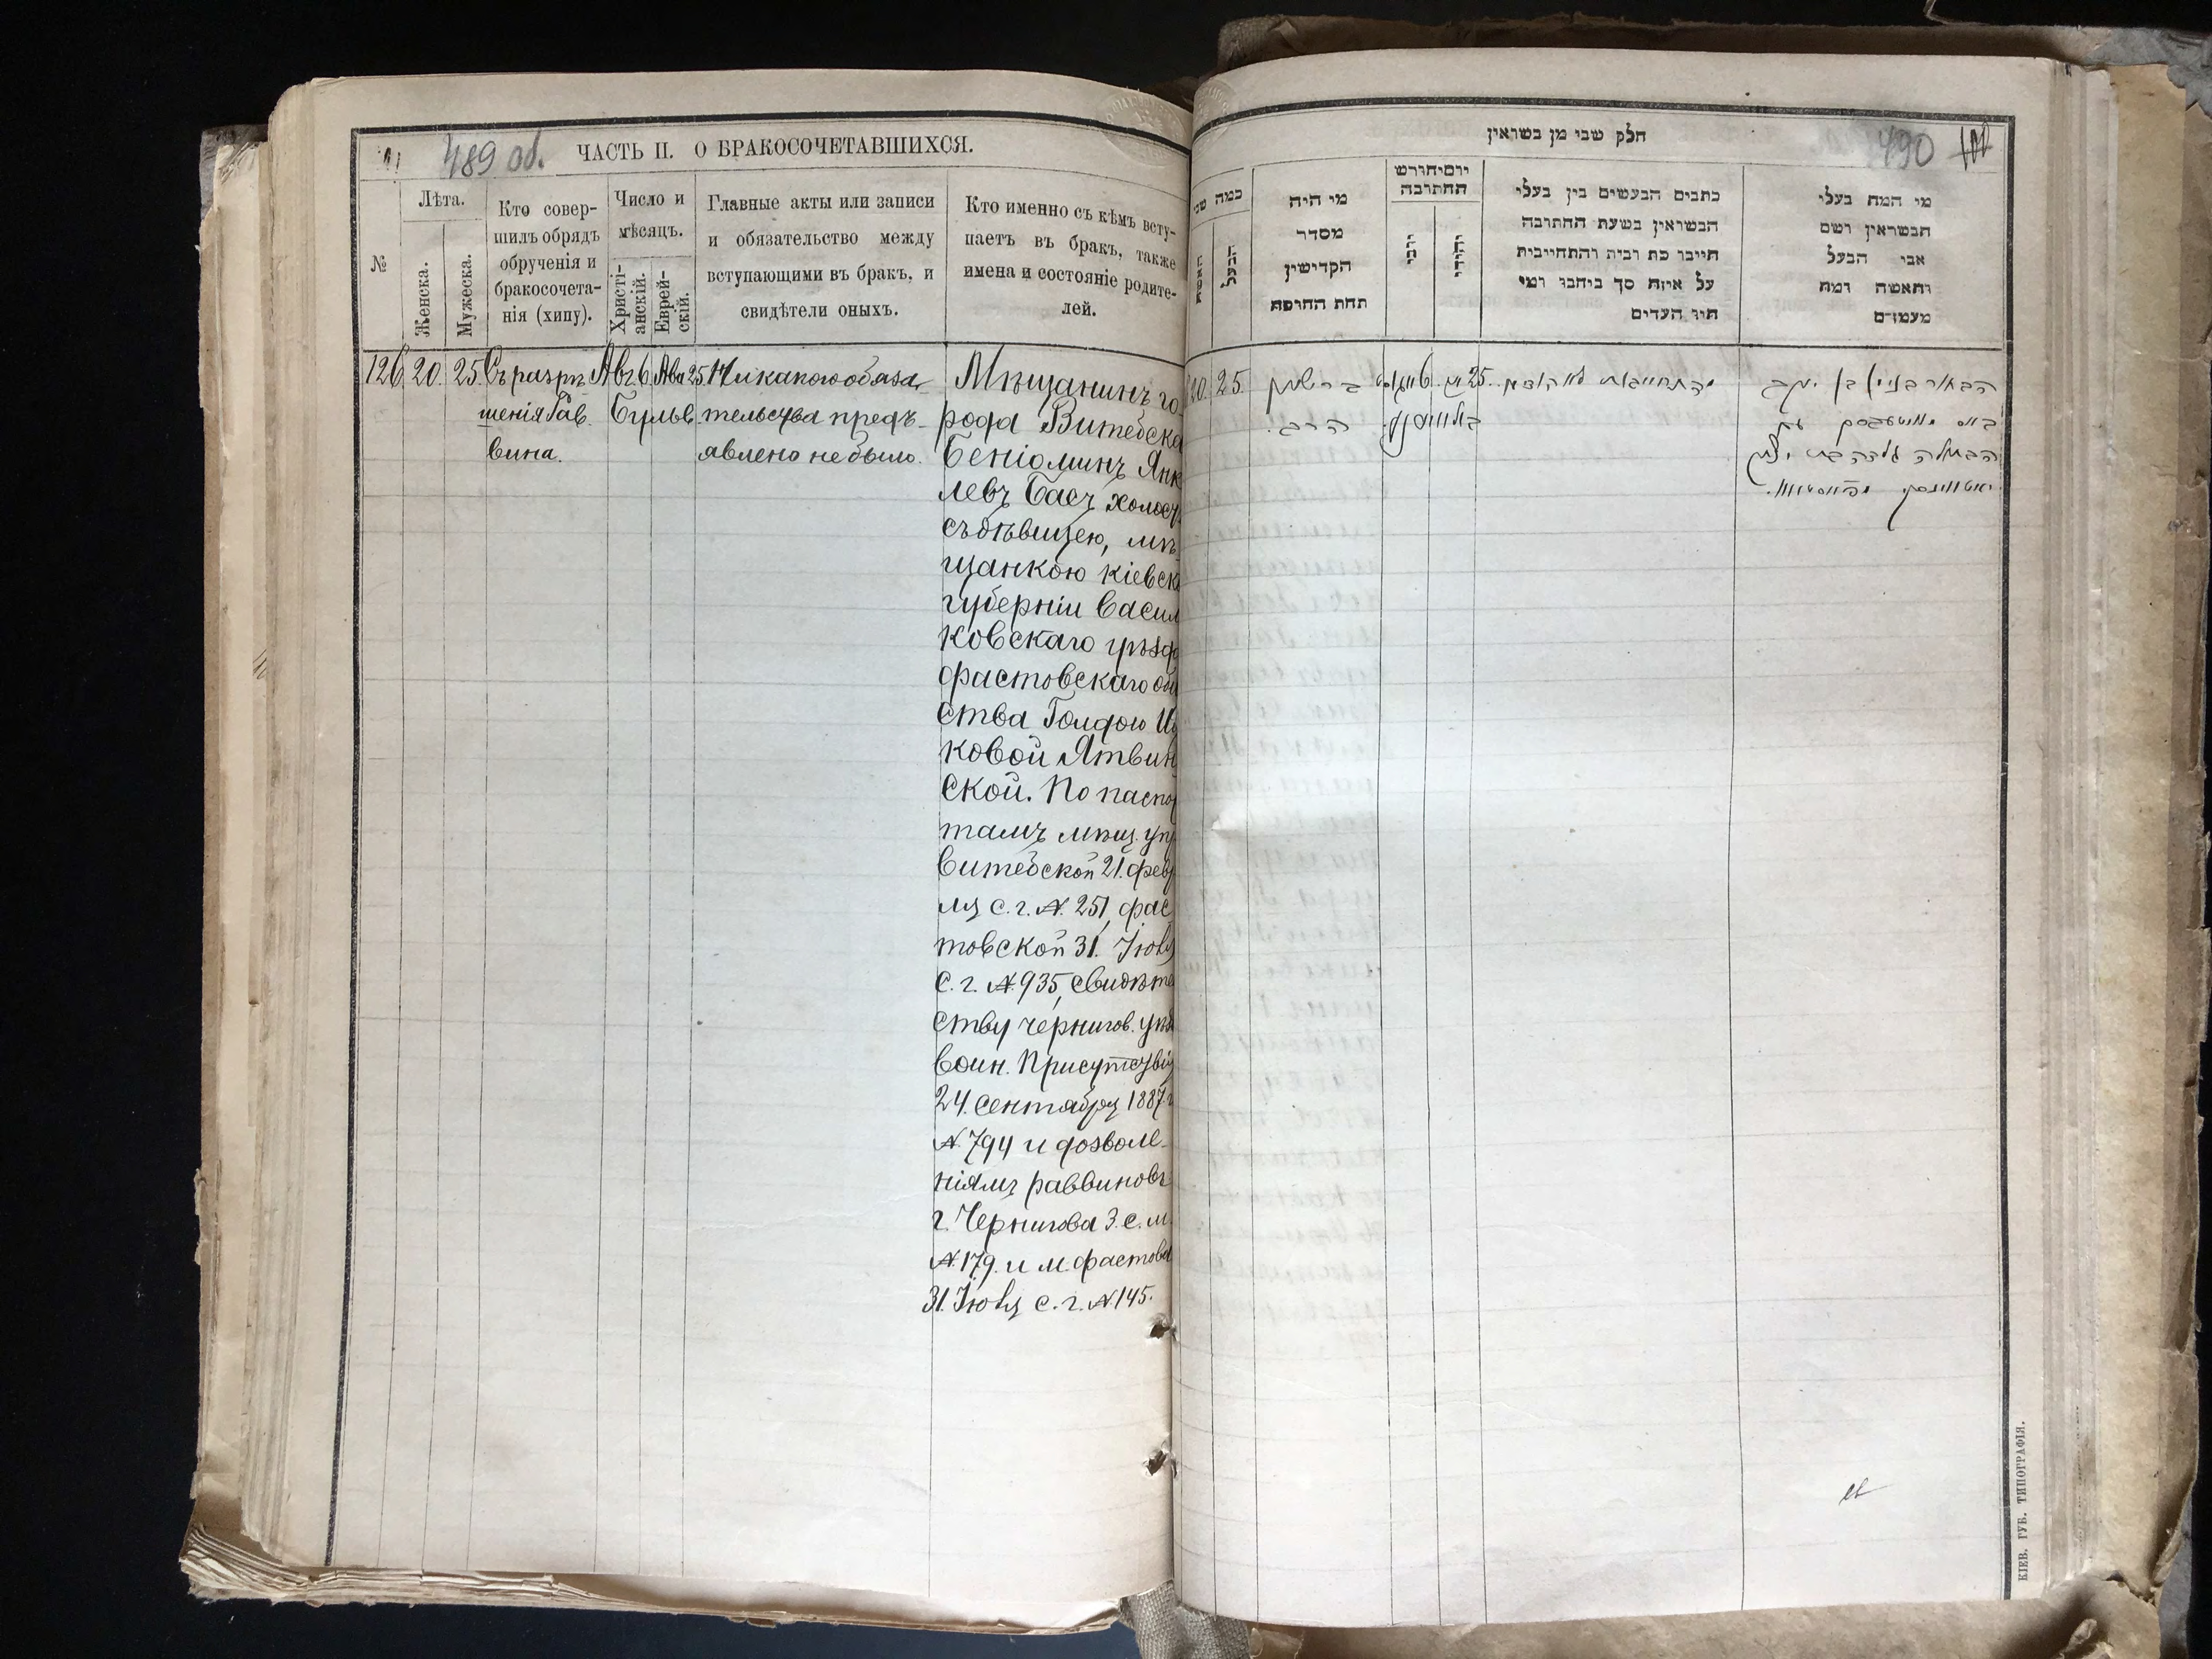 489 об.
ЧАСТЬ II. О БРАКОСОЧЕТАВШИХСЯ.
№
Лѣта.
Женска.
Мужеска.
Кто совер-
шилъ обрядъ
обрученія и
бракосочета-
нія (хипу).
Число и
мѣсяцъ.
Христі-
анскій.
Еврей-
скій.
Главные акты или записи
и обязательство между
вступающими въ бракъ, и
свидѣтели оныхъ.
Кто именно съ кѣмъ всту-
паетъ въ бракъ, также
имена и состояніе родите-
лей.
126 20. 25.
Съ разрѣ
шенія Рав.
вина.
Авг. 6. Ава 25.
Никакого обяза
тельства предъ-
явлено не было.
Мѣщанинъ го-
рода Витебска
Беніоминъ Янк
левъ Басъ холост
съ дѣвицею, мѣ-
щанкою Кіевск
губерніи Васил
ковскаго уѣзд
фастовскаго об
ства Голдою Иц
ковой Ятвин
ской. По паспор
тамъ мѣщ. упр
Витебской 21. февр
ля с. г. №. 251, фас
товской 31. Іюля
с. г. №. 935, свидѣте
ству чернигов. уѣзд
воин. Присутствія
24. сентября 1887 г
№. 794 и дозволе-
ніямъ раввиновъ
г. Чернигова 3. с. м.
№. 179. и м. фастова
31. Іюля с. г. №. 145.
490
חלק שבי מן בשראין
כמה שני
האשה
הבעל
מי היה
מסדר
הקדישין
תחת החופה
יום וחורש
החתובה
יוני
יהודי
כתבים הבעשים בין בעלי
הבשראין בשעת החתובה
חייבו כת וביח והתחייבית
על איזה סך ביחבו ומי
חיו העדים
מי המח בעלי
חבשראין ושם
אבי הבעל
וחאשה ומח
מעמדם
20. 25.
ברשיון
הרב.
6 אויגוסט
25
הבחור בנימין בן יעקב
הבתולה גאלדה בת יצחק
КІЕВ. ГУБ. ТИПОГРАФІЯ.